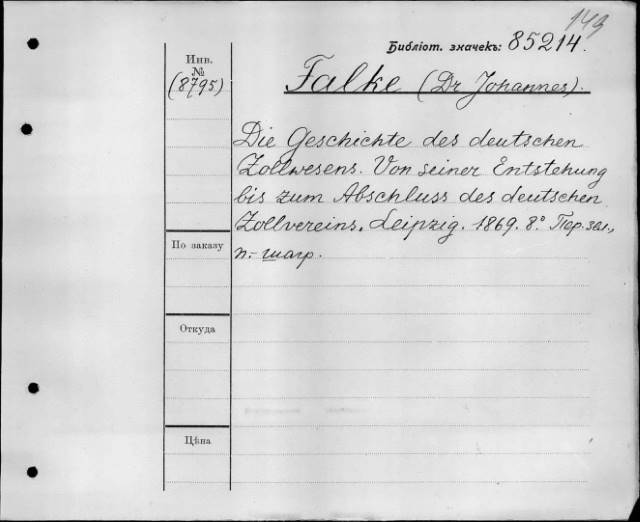 149
Библіот. значекъ: 85214.
Инв.
№
(8795)
Falke (Dr Johannes).
Die Geschichte des deutschen
Zollwesens. Von seiner Entstehung
bis zum Abschluss des deutschen
Zollvereins. Leipzig. 1869. 8.° Пер. зел.,
п.- шагр.
По заказу
Откуда
Цѣна